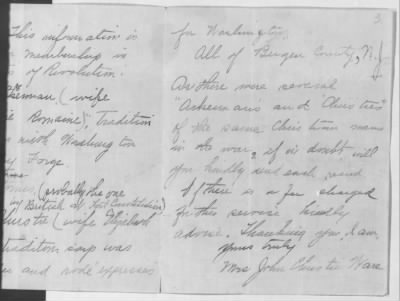 3
This information is
membership in
of Revolution.
(wife
Romaine) Tradition
with Washington
Forge
(probably the one
by British at Fort Constitution)
(wife Elizabeth
tradition says was
and rode expresses
for Washington.
All of Bergen County, N.J.
As there were several
"Ackerman's and Christies"
of the same Christian name
in the war, if in doubt will
you kindly send each record
If there is a fee charged
for this service kindly
advise. Thanking you, I am,
yours truly
Mrs John Christie Ware